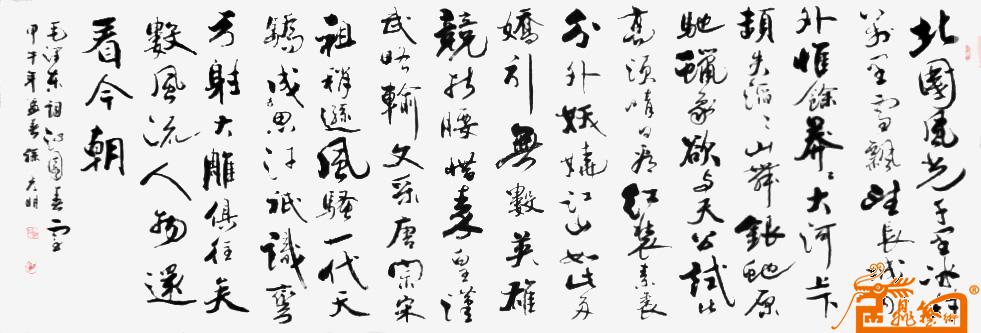 北國風光千里冰封
萬里雪飄望長城內
外惟餘莽々大河上下
頓失滔々山舞銀蛇原
馳蠟象欲與天公試比
高須晴日看紅裝素裹
分外妖嬈江山如此多
嬌引無數英雄
競折腰惜秦皇漢
武略輸文采唐宗宋
祖稍遜風騷一代天
驕成思汗祇識彎
弓射大雕俱往矣
數風流人物還
看今朝
毛澤東詞沁園春雪
甲午年孟春